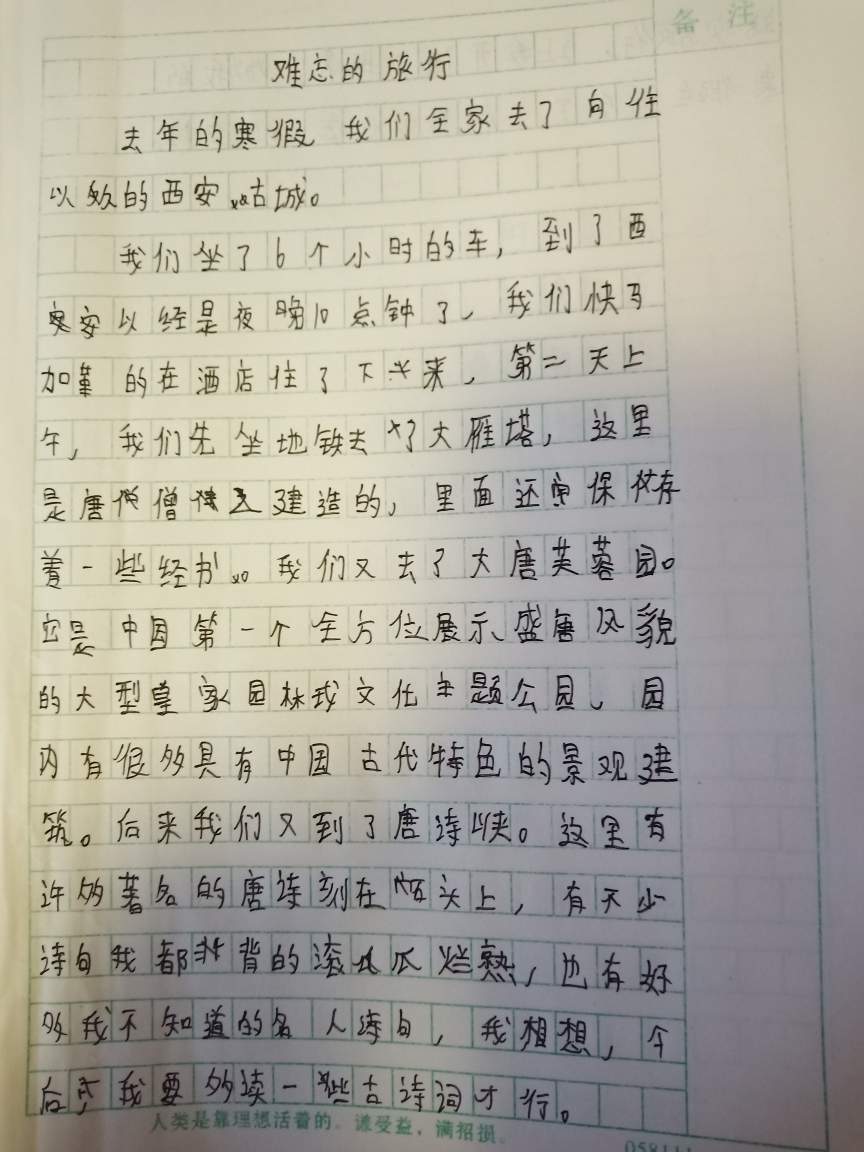 备注
难忘的旅行
去年的寒假 我们全家去了向往
以久的西安古城。
我们坐了6个小时的车，到了西
安以经是夜晚10点钟了，我们快马
加革的在酒店住了下来，第二天上
午，我们先坐地铁去了大雁塔，这里
是唐僧建造的，里面还保存
着一些经书。我们又去了大唐芙蓉园。
它是中国第一个全方位展示盛唐风貌
的大型皇家园林式文化主题公园，园
内有很多具有中国古代特色的景观建
筑。后来我们又到了唐诗峡。这里有
许多著名的唐诗刻在石头上，有不少
诗句我都背的滚瓜烂熟，也有好
多我不知道的名人诗句，我想想，今
后我要多读一些古诗词才行。
人类是靠理想活着的。谦受益，满招损。